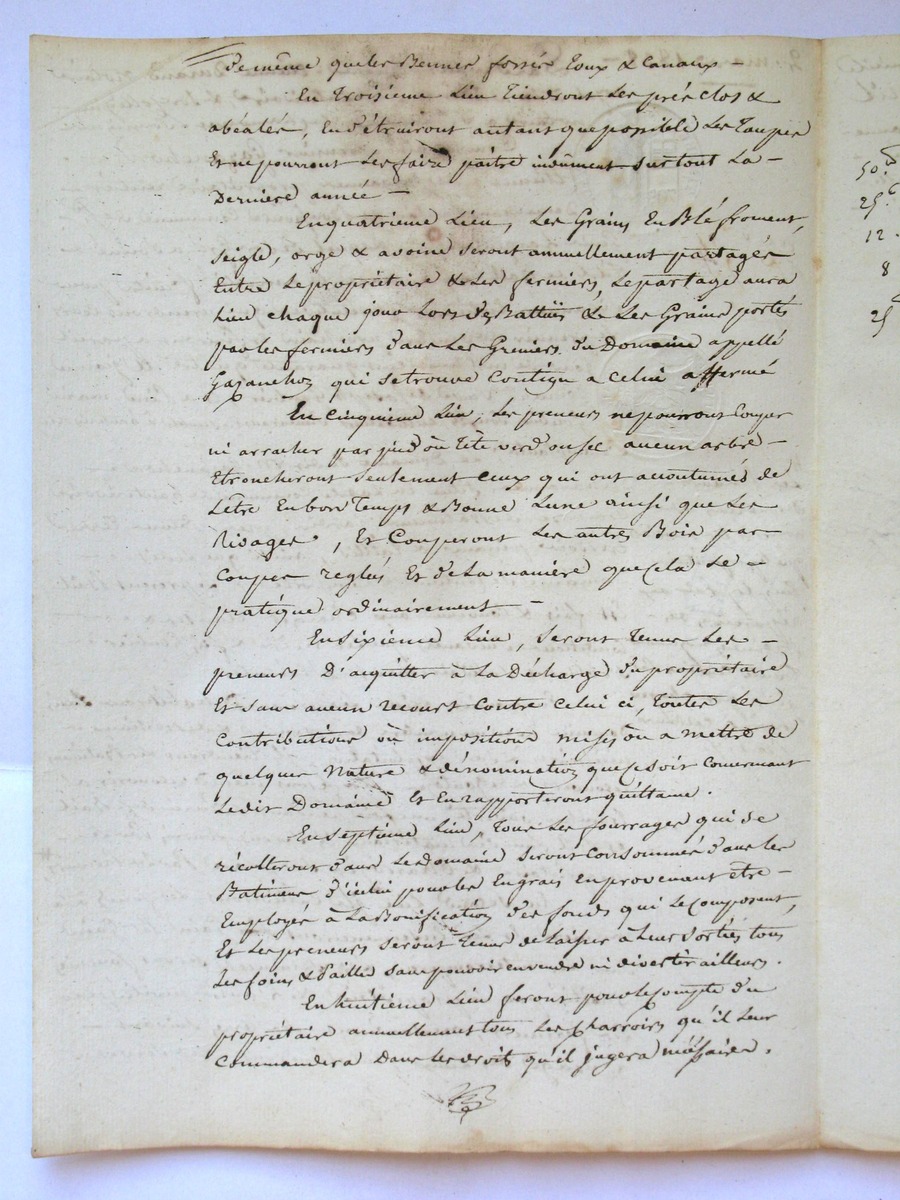 de même que les Bennes fossés Eoux & Canaux –
En Troisieme Lieu Tiendront Les prés clos &
abéalés, En d'étruiront autant que possible Les Taupes
Et ne pourront Les faire paitre indûment surtout La –
Derniere année –
En quatrieme Lieu, Les Grains En Blé froment,
seigle, orge & avoine seront annuellement partagés
Entre Le propriétaire & Les fermiers, Le partage aura
Lieu chaque jour Lors des Battües & Les Grains portés
par les fermiers dans Les Greniers du Domaine appellé
qui se trouve Contigu a Celui affermé
En Cinquieme Lieu, Les preneurs ne pourront Couper
ni arracher par pied ou Tête verd ou sec aucun arbre –
Et troncheront seulement ceux qui ont accoutumés de
L'être En bon Temps & Bonne Lune ainsi que Les
Rivages, Et Couperont Les autres Bois par
Coupes reglées Et de La maniere que Cela se –
pratique ordinairement –
En sixieme Lieu, seront Tenus Les –
preneurs D'aquitter à La Décharge du propriétaire
Et sans aucun recours Contre Celui ci, Toutes Les
Contributions ou impositions mises ou a mettre de
quelque Nature & dénomination que ce soit Concernant
Ledit Domaine Et En rapporteront quittance.
En septieme Lieu, Tous Les fourrages qui se
récolteront dans Le Domaine seront Consommés dans les
Batimens d'icelui pour les Engrais En provenant être –
Employés à La Bonification des fonds qui Le Composent,
Et Les preneurs seront Tenus de Laisser à Leur sorties tous
Les foins & Pailles sans pouvoir en vendre ni divertir ailleurs.
En huitieme Lieu feront pour le Compte du
propriétaire annuellement tous Les Charrois qu'il Leur
Commandera Dans les droits qu'il jugera nécéssaires.
50.
25.
12
8
25